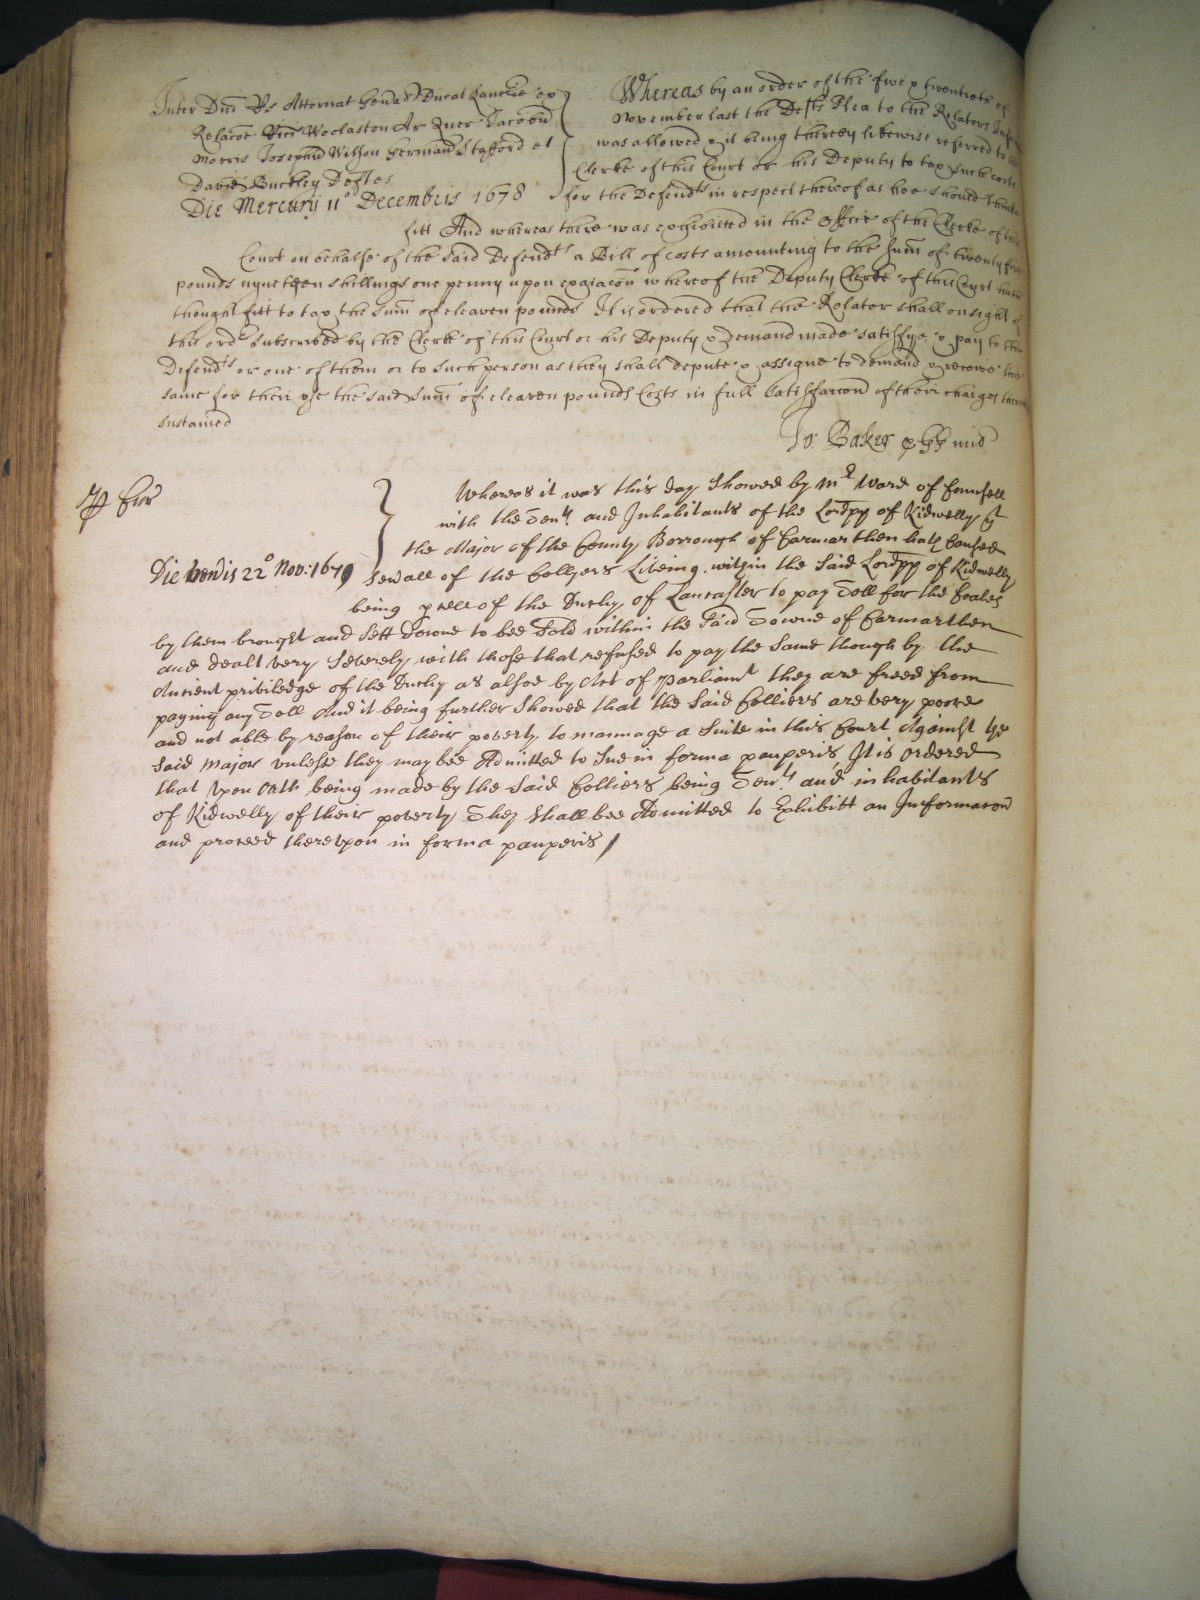 Inter Dm Rs Attornat Genal Ducat Lancrie ex
Relacoe Ricei Woolaston Ar Quer Jacobu
Morris Josephu Wilson Hermanu Stafford et
David Buckley Deftes
Die Mercurij 11o Decembris 1678
Whereas by an order of the five & twentieth of
November last the Defts Plea to the Relators
was allowed & it being thereby likewise referred to the
Clerke of this Court or his Deputy to tax such costs
for the Defendts in respect thereof as hee should thinke
fitt And whereas there was exhibited in the Office of the Clerke of this
Court on behalfe of the said Defendts a Bill of costs amounting to the sum of twenty five
pounds nyneteen shillings one penny upon exaiacon whereof the Deputy Clerke of this Court hath
thought fitt to tax the sum of eleaven pounds It is ordered that the Relator shall on sight of
this ordr subscribed by the Clerke of this Court or his Deputy & demand made satisfye & pay to the
Defendts or one of them or to such person as they shall depute & assigne to demand & receive the
same for their use the said sum of eleaven pounds Costs in full satisfaccon of their charges therein
sustained
Jo: Baker
Cur
Die Lunis 22o Nov: 1679
Whereas it was this day Showed by Mr Ward of Councell
with the Tents and Inhabitants of the Lordpp of Kidwelly yt
the Major of the County Borrough of Carmarthen hath Caused
sevall of the Collyers Liveing within the said Lordpp of Kidwelly
being pcell of the Dutchy of Lancaster to pay Toll for the Coales
by them brought and Sett downe to bee Sold within the said Towne of Carmarthen
and dealt very Severely with those that refused to pay the Same though by the
Ancient priviledge of the Dutchy as alsoe by Act of Parliamt they are freed from
paying any Toll And it being further Showed that the said Colliers are very poore
and not able by reason of their poverty to mannage a Suite in this Court Against ye
said Major unlesse they may bee Admitted to Sue in forma pauperis It is ordered
that Upon oath being made by the said Colliers being Tents and inhabitants
of Kidwelly of their poverty They shall bee Admitted to Exhibitt an Informacon
and proceed thereupon in forma pauperis /